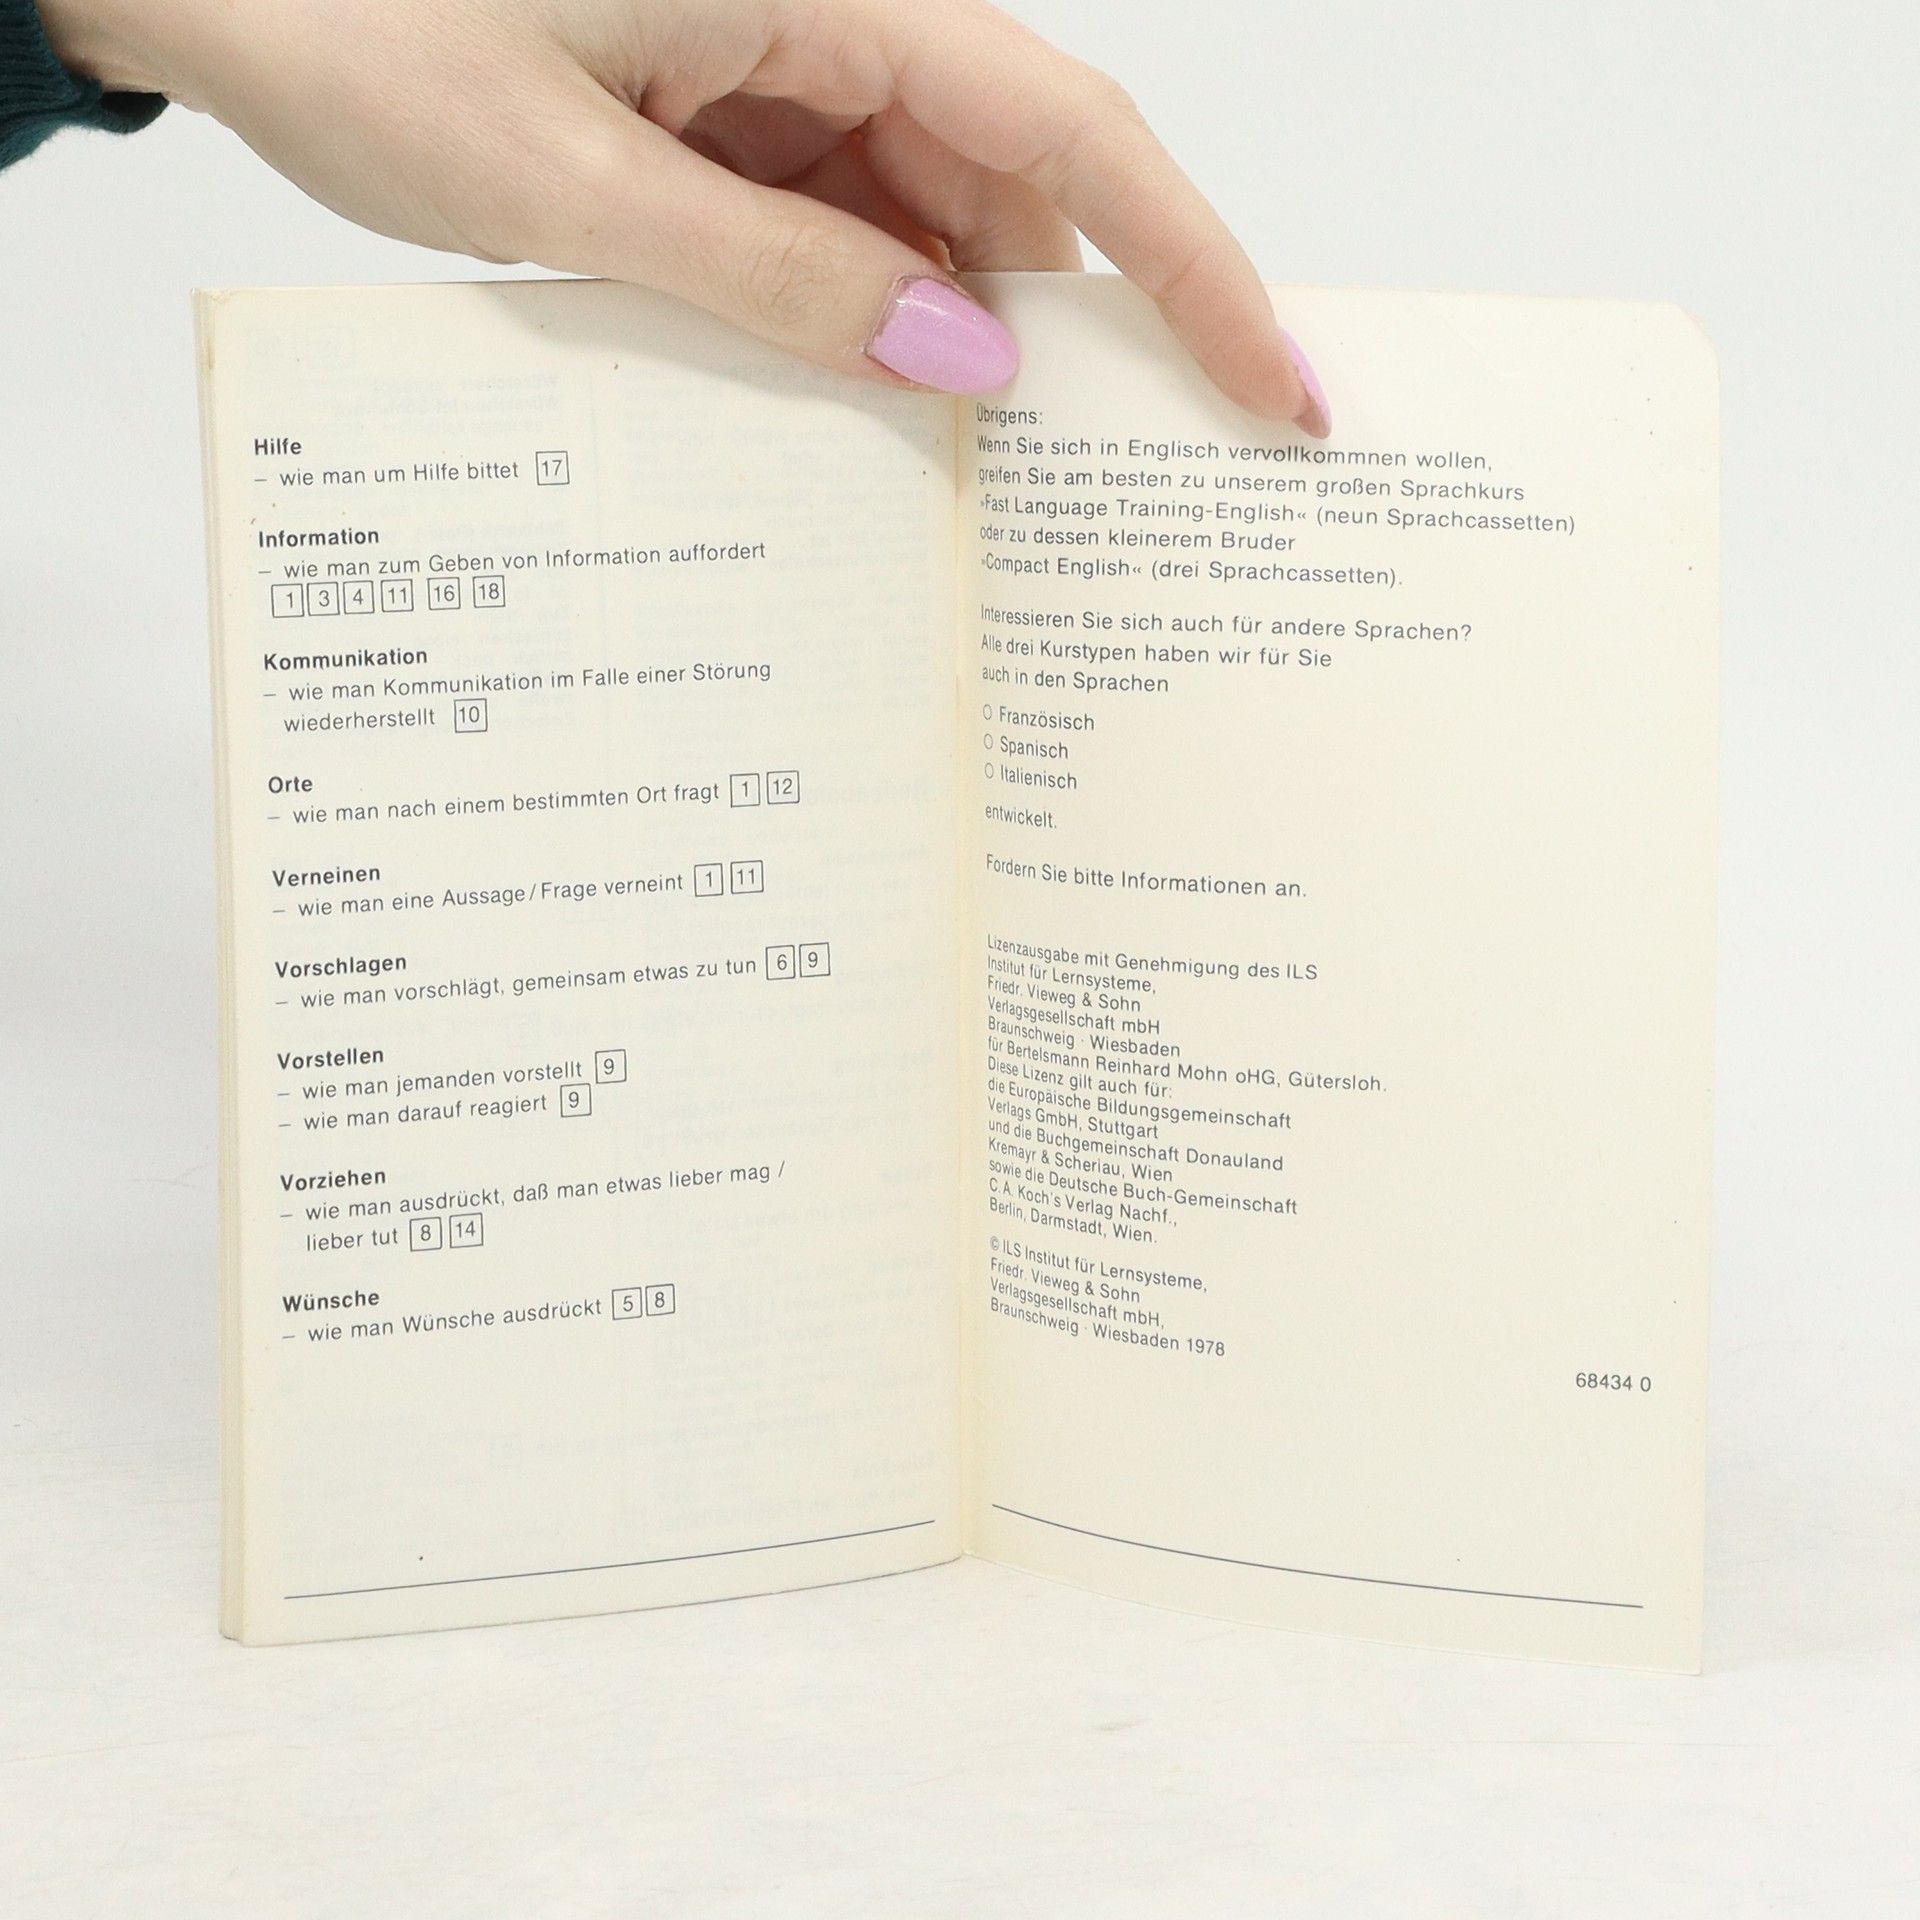 Hilfe
– wie man um Hilfe bittet 17
Information
– wie man zum Geben von Information auffordert
1 3 4 11 16 18
Kommunikation
– wie man Kommunikation im Falle einer Störung
wiederherstellt 10
Orte
– wie man nach einem bestimmten Ort fragt 1 12
Verneinen
– wie man eine Aussage/Frage verneint 1 11
Vorschlagen
– wie man vorschlägt, gemeinsam etwas zu tun 6 9
Vorstellen
– wie man jemanden vorstellt 9
– wie man darauf reagiert 9
Vorziehen
– wie man ausdrückt, daß man etwas lieber mag /
lieber tut 8 14
Wünsche
– wie man Wünsche ausdrückt 5 8
Übrigens:
Wenn Sie sich in Englisch vervollkommnen wollen,
greifen Sie am besten zu unserem großen Sprachkurs
»Fast Language Training-English« (neun Sprachcassetten)
oder zu dessen kleinerem Bruder
»Compact English« (drei Sprachcassetten).
Interessieren Sie sich auch für andere Sprachen?
Alle drei Kurstypen haben wir für Sie
auch in den Sprachen
O Französisch
O Spanisch
O Italienisch
entwickelt.
Fordern Sie bitte Informationen an.
Lizenzausgabe mit Genehmigung des ILS
Institut für Lernsysteme,
Friedr. Vieweg & Sohn
Verlagsgesellschaft mbH
Braunschweig · Wiesbaden
für Bertelsmann Reinhard Mohn oHG, Gütersloh.
Diese Lizenz gilt auch für:
die Europäische Bildungsgemeinschaft
Verlags GmbH, Stuttgart
und die Buchgemeinschaft Donauland
Kremayr & Scheriau, Wien
sowie die Deutsche Buch-Gemeinschaft
C.A. Koch's Verlag Nachf.,
Berlin, Darmstadt, Wien.
© ILS Institut für Lernsysteme,
Friedr. Vieweg & Sohn
Verlagsgesellschaft mbH,
Braunschweig · Wiesbaden 1978
68434 0